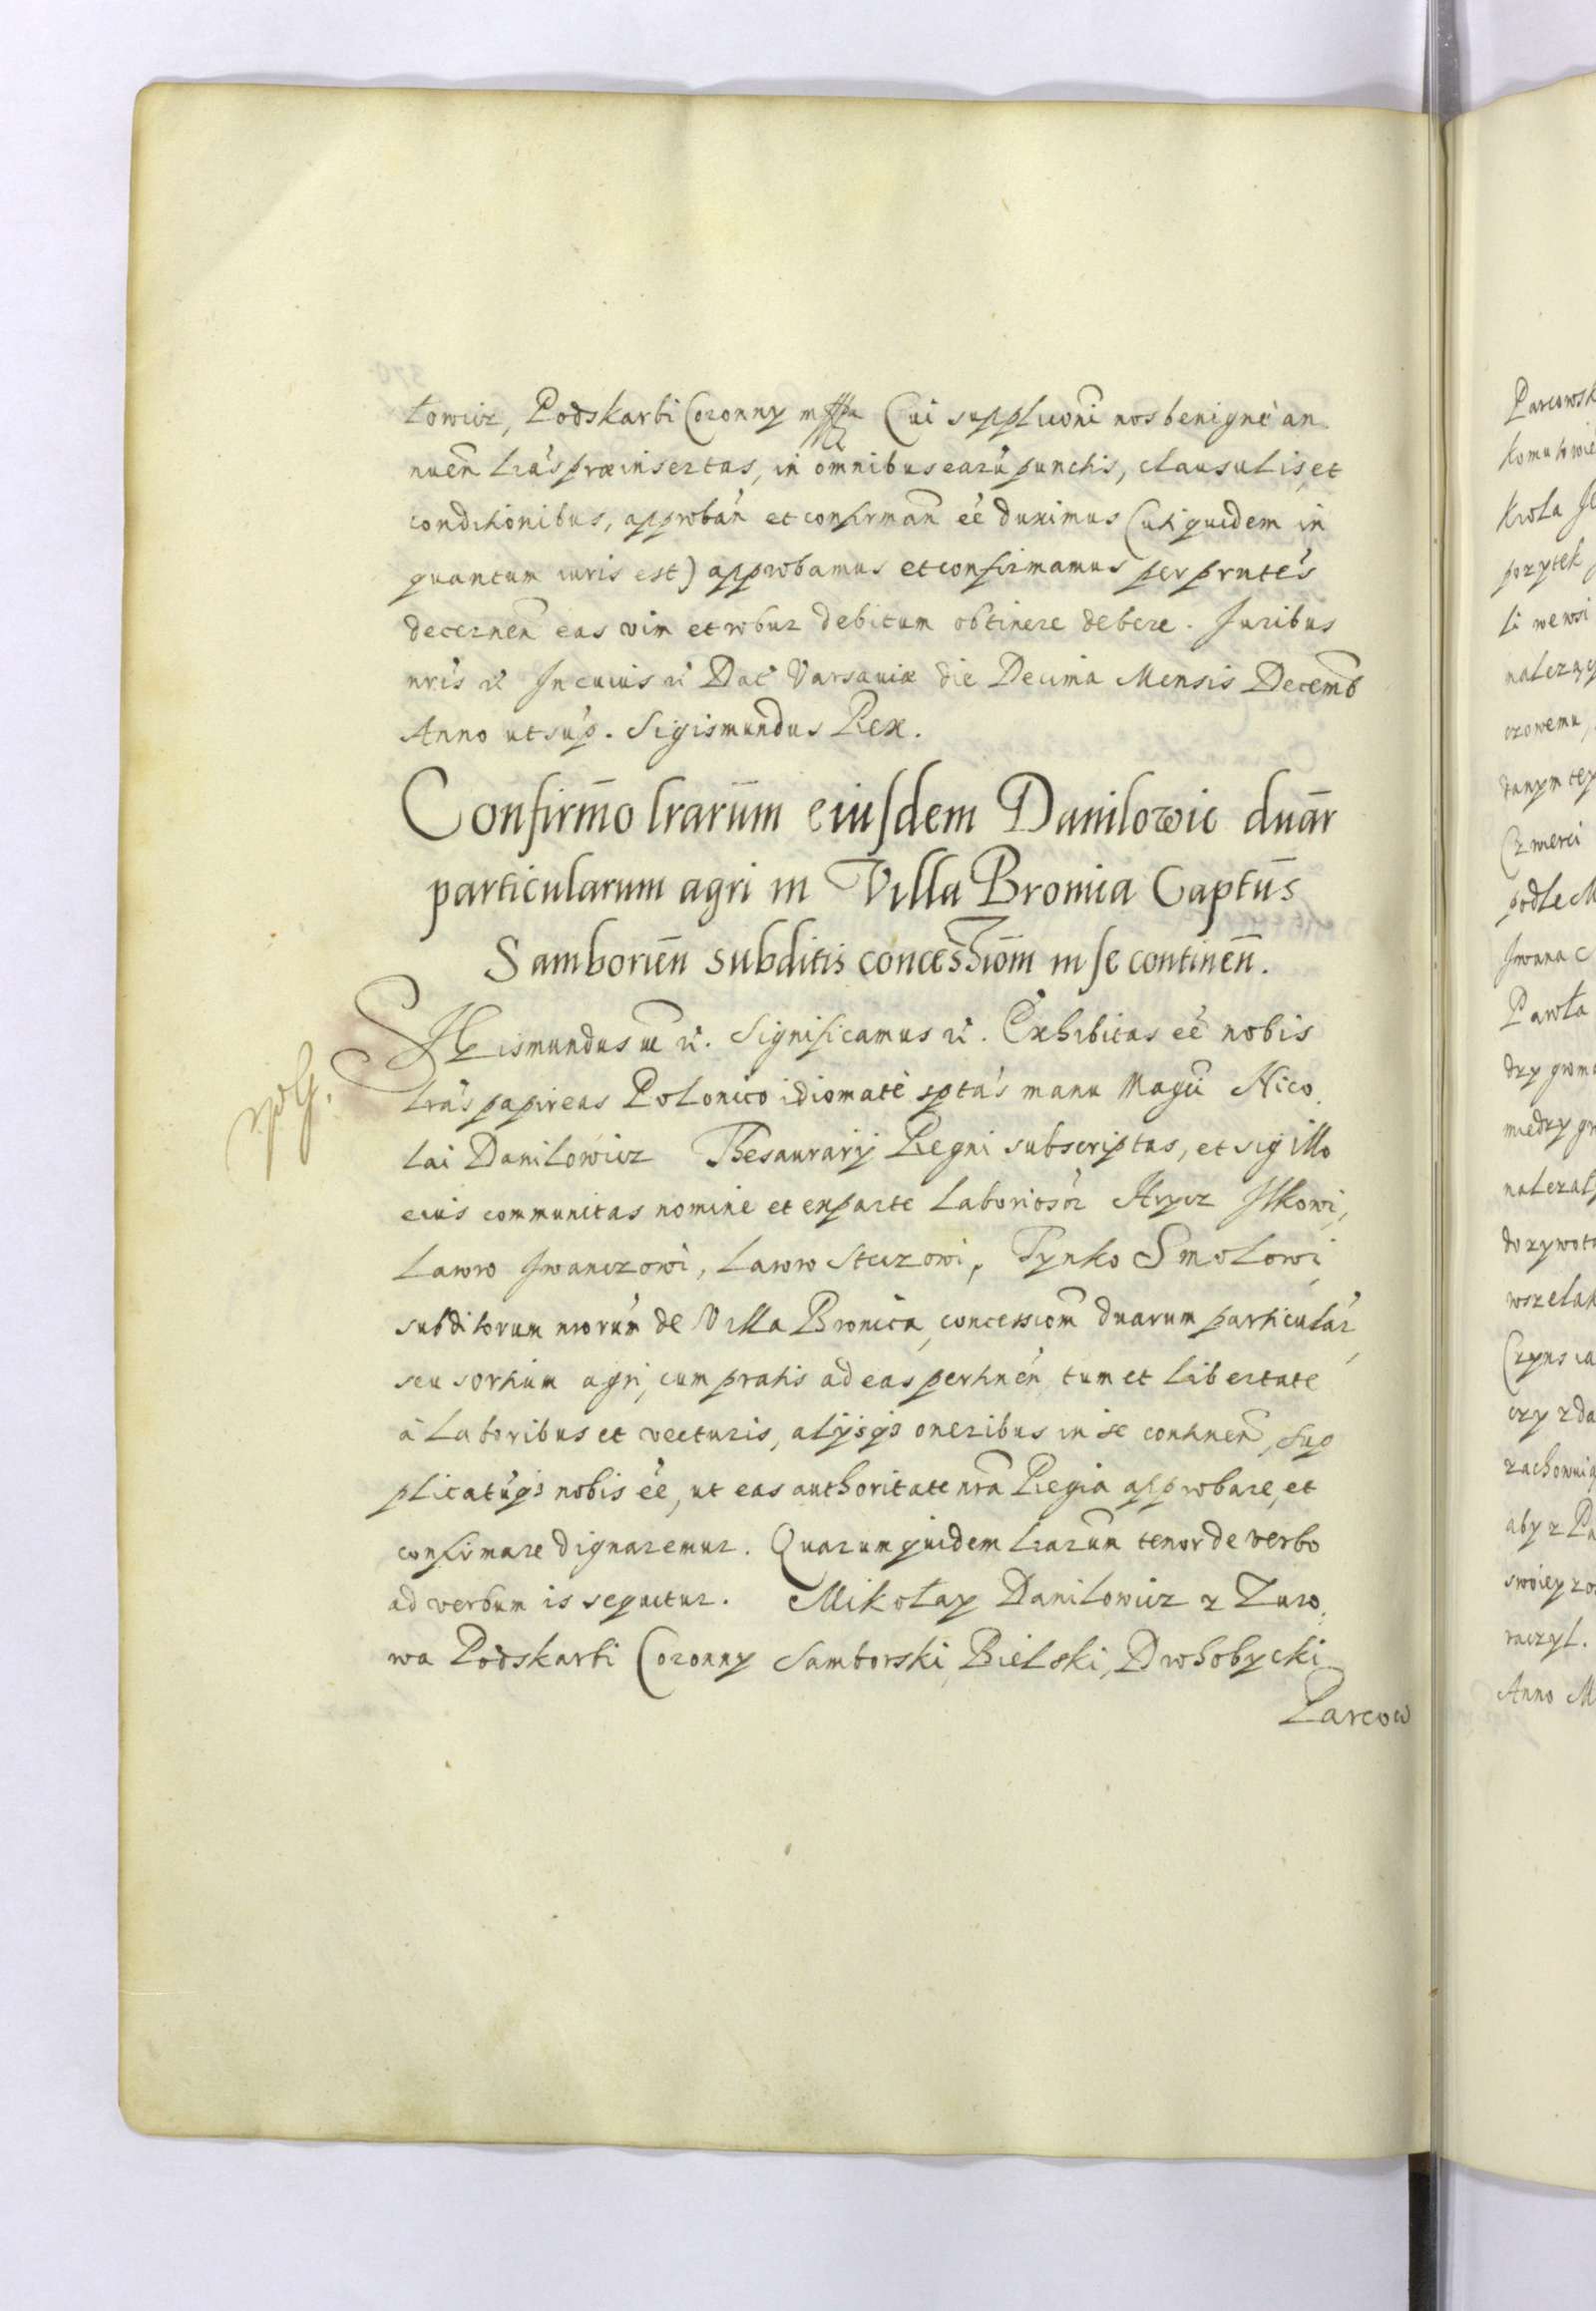 łowicz, Podskarbi Coronny mppa Cui supplicõni nos benigné an
nuen̄ lrás præinsertas, in omnibus earū punctis, clausulis, et
conditionibus, approbán et confirmañ eé duximus (uti quidem in
quantum iuris est) approbamus et confirmamus per prntés
decernen̄ eas vim et robur debitum obtinere debere. Juribus
nrís etc. In cuius etc. Dat Varsaviæ die Decima Mensis Decemb
Anno ut súp. Sigismundus Rex.
Confirm̄o lrarūm eiusdem Danilowic duār
particularum agri in Villa Bronica Captūs
Samborien̄ subditis concession̄em in se continen̄.
Sigismundus etc. Significamus etc. Exhibitas eé nobis
lrás papireas Polonico idiomaté sptás manu Magci Nico
lai Daniłowicz Thesaurarij Regni subscriptas, et sigillo
eius communitas nomine et ex parte Laboriosór Hrycz Ilkowi,
Lawro Iwanczowi, Lawro Steczowi, Tynko Smolowi
subditorum nrorúm de Villa Bronica, concessioñ duarum particulár
seu sortium agri, cum pratis ad eas pertinén tum et libertate
à laboribus et vecturis, alijsqs oneribus in se continen̄, sup
plicatúqs nobis eé, ut eas authoritate nra Regia approbare, et
confirmare dignaremur. Quarum quidem lrarum tenor de verbo
ad verbum is sequitur. Mikołay Daniłowicz z Zuro
wa Podskarbi Coronny Samborski, Bielski, Drohobycki
Parcow
Parcowsk
Komu to wie
Krola J
pozytek
li we wsi
nalezący
czowemu,
danym tey
Czwerci
podle M
Iwana
Pawła
dzy grom
miedzy gr
nalezał
dozywot
wszelak
Czyns
czy z da
zachowuią
aby z Pa
swoiey
raczył.
Anno M